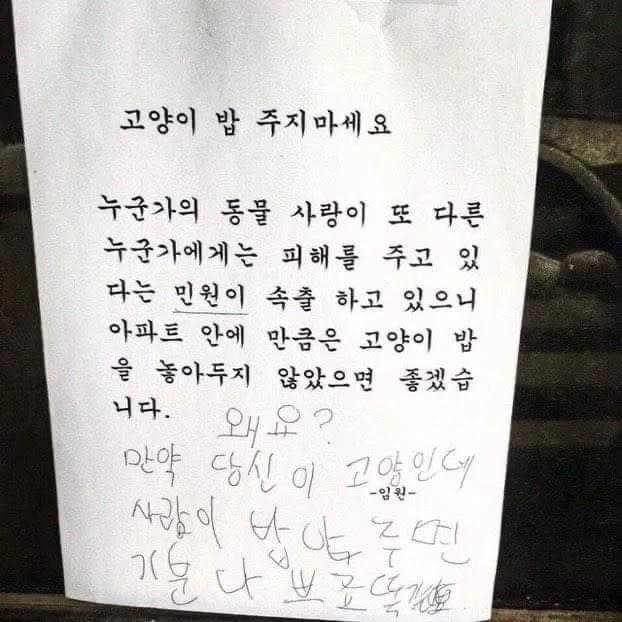 고양이 밥 주지마세요
누군가의 동물 사랑이 또 다른
누군가에게는 피해를 주고 있
다는 민원이 속출 하고 있으니
아파트 안에 만큼은 고양이 밥
을 놓아두지 않았으면 좋겠습
니다.
왜요?
만약 당신이 고양인데
-임원-
사람이 밥 안 주면
기분 나쁘고 똑같아요.